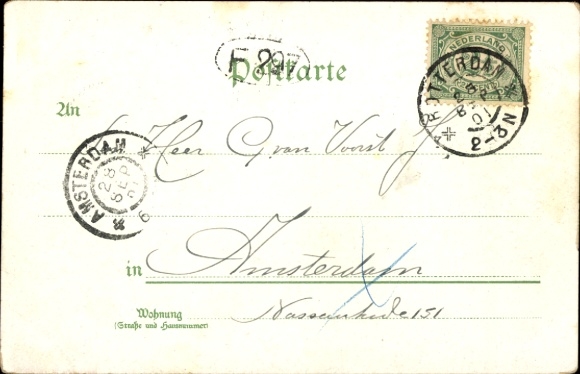 F 297
Postkarte
NEDERLAND
ROTTERDAM
28
SEP
01
2-3N
An
Heer G van Voorst J
AMSTERDAM
28
SEP
01
6
in Amsterdam
Wohnung
(Straße und Hausnummer)
Nassaukade 151